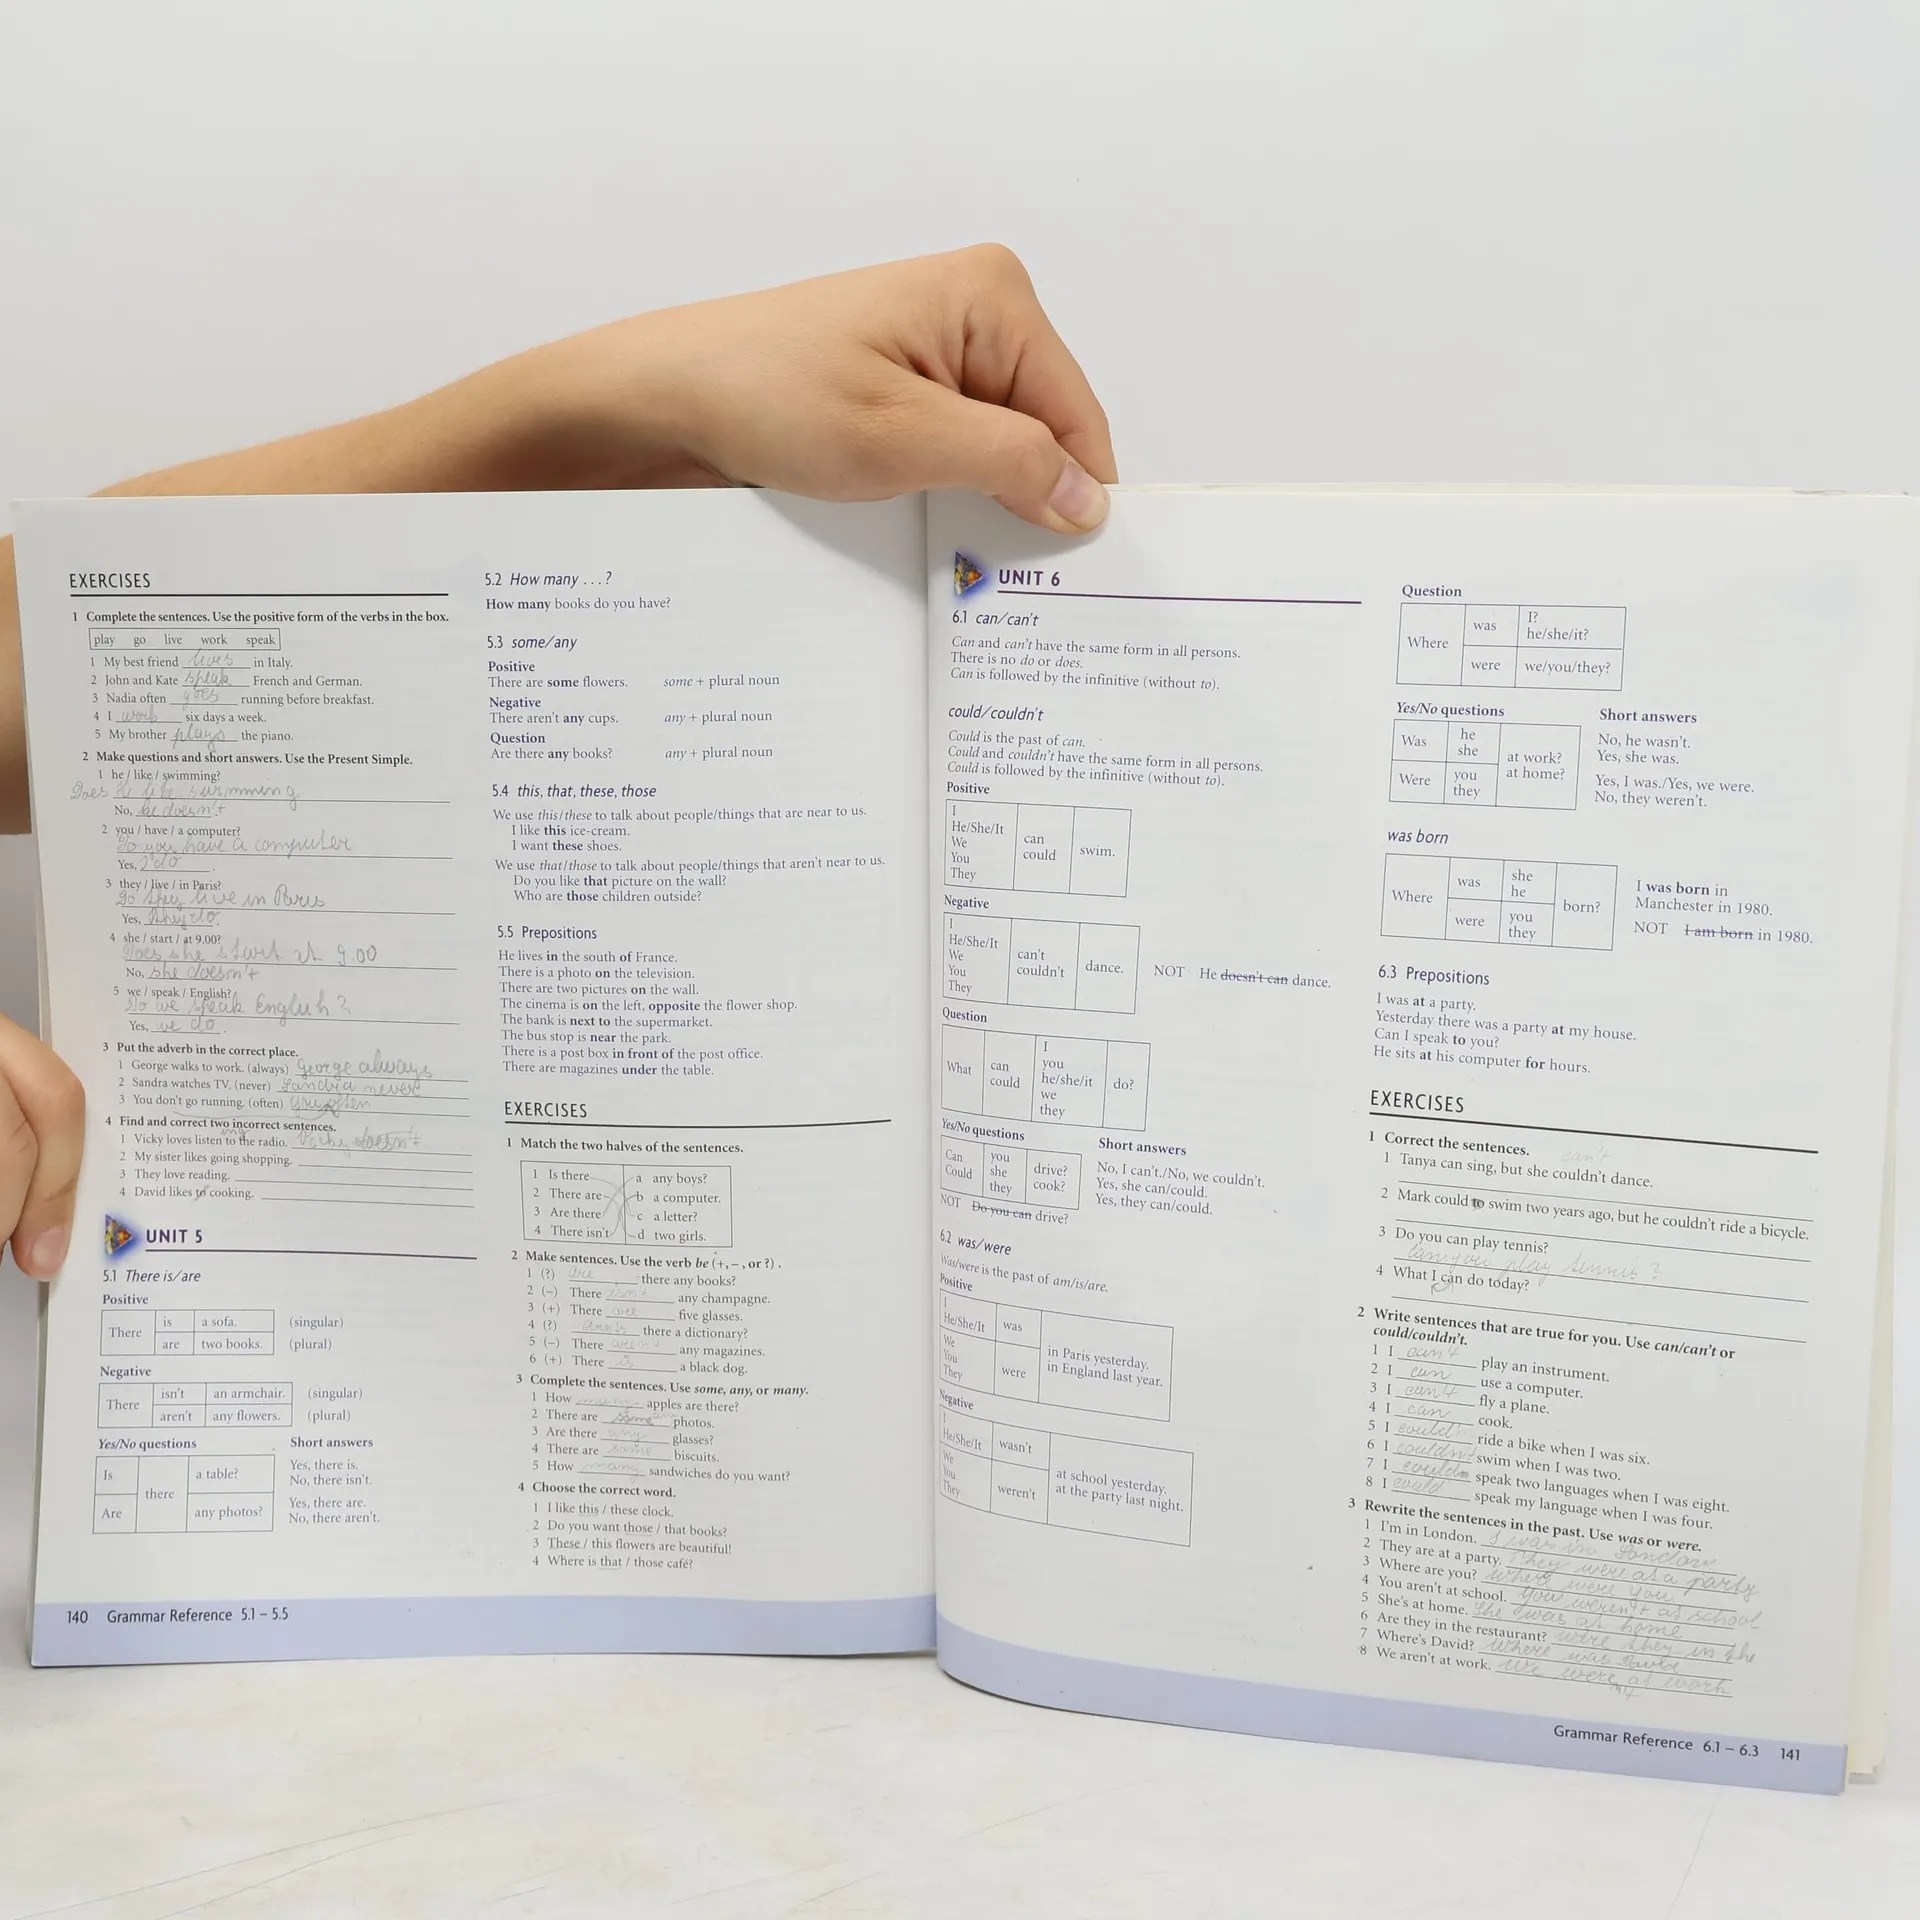 EXERCISES
1 Complete the sentences. Use the positive form of the verbs in the box.
play go live work speak
1 My best friend lives in Italy.
2 John and Kate speak French and German.
3 Nadia often goes running before breakfast.
4 I work six days a week.
5 My brother plays the piano.
2 Make questions and short answers. Use the Present Simple.
1 he / like / swimming?
Does He like swimming
No, he doesn't.
2 you / have / a computer?
Do you have a computer
Yes, I do.
3 they / live / in Paris?
Do they live in Paris
Yes, they do.
4 she / start / at 9.00?
Does she start at 9.00
No, she doesn't
5 we / speak / English?
Do we speak English?
Yes, we do.
3 Put the adverb in the correct place.
1 George walks to work. (always) George always
2 Sandra watches TV. (never) Sandra never
3 You don't go running. (often) You often
4 Find and correct two incorrect sentences.
1 Vicky loves listen to the radio. Vicky doesn't
2 My sister likes going shopping.
3 They love reading.
4 David likes to cooking.
UNIT 5
5.1 There is/are
Positive
There is a sofa. (singular)
are two books. (plural)
Negative
There isn't an armchair. (singular)
aren't any flowers. (plural)
Yes/No questions Short answers
Is there a table? Yes, there is.
No, there isn't.
Are any photos? Yes, there are.
No, there aren't.
140 Grammar Reference 5.1 – 5.5
5.2 How many . . . ?
How many books do you have?
5.3 some/any
Positive
There are some flowers. some + plural noun
Negative
There aren't any cups. any + plural noun
Question
Are there any books? any + plural noun
5.4 this, that, these, those
We use this/these to talk about people/things that are near to us.
I like this ice-cream.
I want these shoes.
We use that/those to talk about people/things that aren't near to us.
Do you like that picture on the wall?
Who are those children outside?
5.5 Prepositions
He lives in the south of France.
There is a photo on the television.
There are two pictures on the wall.
The cinema is on the left, opposite the flower shop.
The bank is next to the supermarket.
The bus stop is near the park.
There is a post box in front of the post office.
There are magazines under the table.
EXERCISES
1 Match the two halves of the sentences.
1 Is there a any boys?
2 There are b a computer.
3 Are there c a letter?
4 There isn't d two girls.
2 Make sentences. Use the verb be (+, – , or ?) .
1 (?) are there any books?
2 (–) There isn't any champagne.
3 (+) There are five glasses.
4 (?) there a dictionary?
5 (–) There aren't any magazines.
6 (+) There is a black dog.
3 Complete the sentences. Use some, any, or many.
1 How many apples are there?
2 There are some photos.
3 Are there any glasses?
4 There are some biscuits.
5 How many sandwiches do you want?
4 Choose the correct word.
1 I like this / these clock.
2 Do you want those / that books?
3 These / this flowers are beautiful!
4 Where is that / those café?
UNIT 6
6.1 can/can't
Can and can't have the same form in all persons.
There is no do or does.
Can is followed by the infinitive (without to).
could/couldn't
Could is the past of can.
Could and couldn't have the same form in all persons.
Could is followed by the infinitive (without to).
Positive
I
He/She/It
We
You
They
can
could
swim.
Negative
I
He/She/It
We
You
They
can't
couldn't
dance.
NOT He doesn't can dance.
Question
What
can
could
I
you
he/she/it
we
they
do?
Yes/No questions Short answers
Can
Could
you
she
they
drive?
cook?
No, I can't./No, we couldn't.
Yes, she can/could.
Yes, they can/could.
NOT Do you can drive?
6.2 was/were
Was/were is the past of am/is/are.
Positive
I
He/She/It
was
We
You
They
were
in Paris yesterday.
in England last year.
Negative
I
He/She/It
wasn't
We
You
They
weren't
at school yesterday.
at the party last night.
Question
Where
was
I?
he/she/it?
were
we/you/they?
Yes/No questions Short answers
Was
he
she
Were
you
they
at work?
at home?
No, he wasn't.
Yes, she was.
Yes, I was./Yes, we were.
No, they weren't.
was born
Where
was
she
he
were
you
they
born?
I was born in
Manchester in 1980.
NOT I am born in 1980.
6.3 Prepositions
I was at a party.
Yesterday there was a party at my house.
Can I speak to you?
He sits at his computer for hours.
EXERCISES
1 Correct the sentences.
can't
1 Tanya can sing, but she couldn't dance.
2 Mark could to swim two years ago, but he couldn't ride a bicycle.
3 Do you can play tennis?
Can you play tennis?
4 What I can do today?
2 Write sentences that are true for you. Use can/can't or
could/couldn't.
1 I can't play an instrument.
2 I can use a computer.
3 I can't fly a plane.
4 I can cook.
5 I could ride a bike when I was six.
6 I couldn't swim when I was two.
7 I speak two languages when I was eight.
8 I could speak my language when I was four.
3 Rewrite the sentences in the past. Use was or were.
1 I'm in London. I was in London
2 They are at a party. They were at a party
3 Where are you? where were you
4 You aren't at school. You weren't at school
5 She's at home. She was at home
6 Are they in the restaurant? were they in the
7 Where's David? where was David
8 We aren't at work. we were at work
n't
Grammar Reference 6.1 – 6.3 141